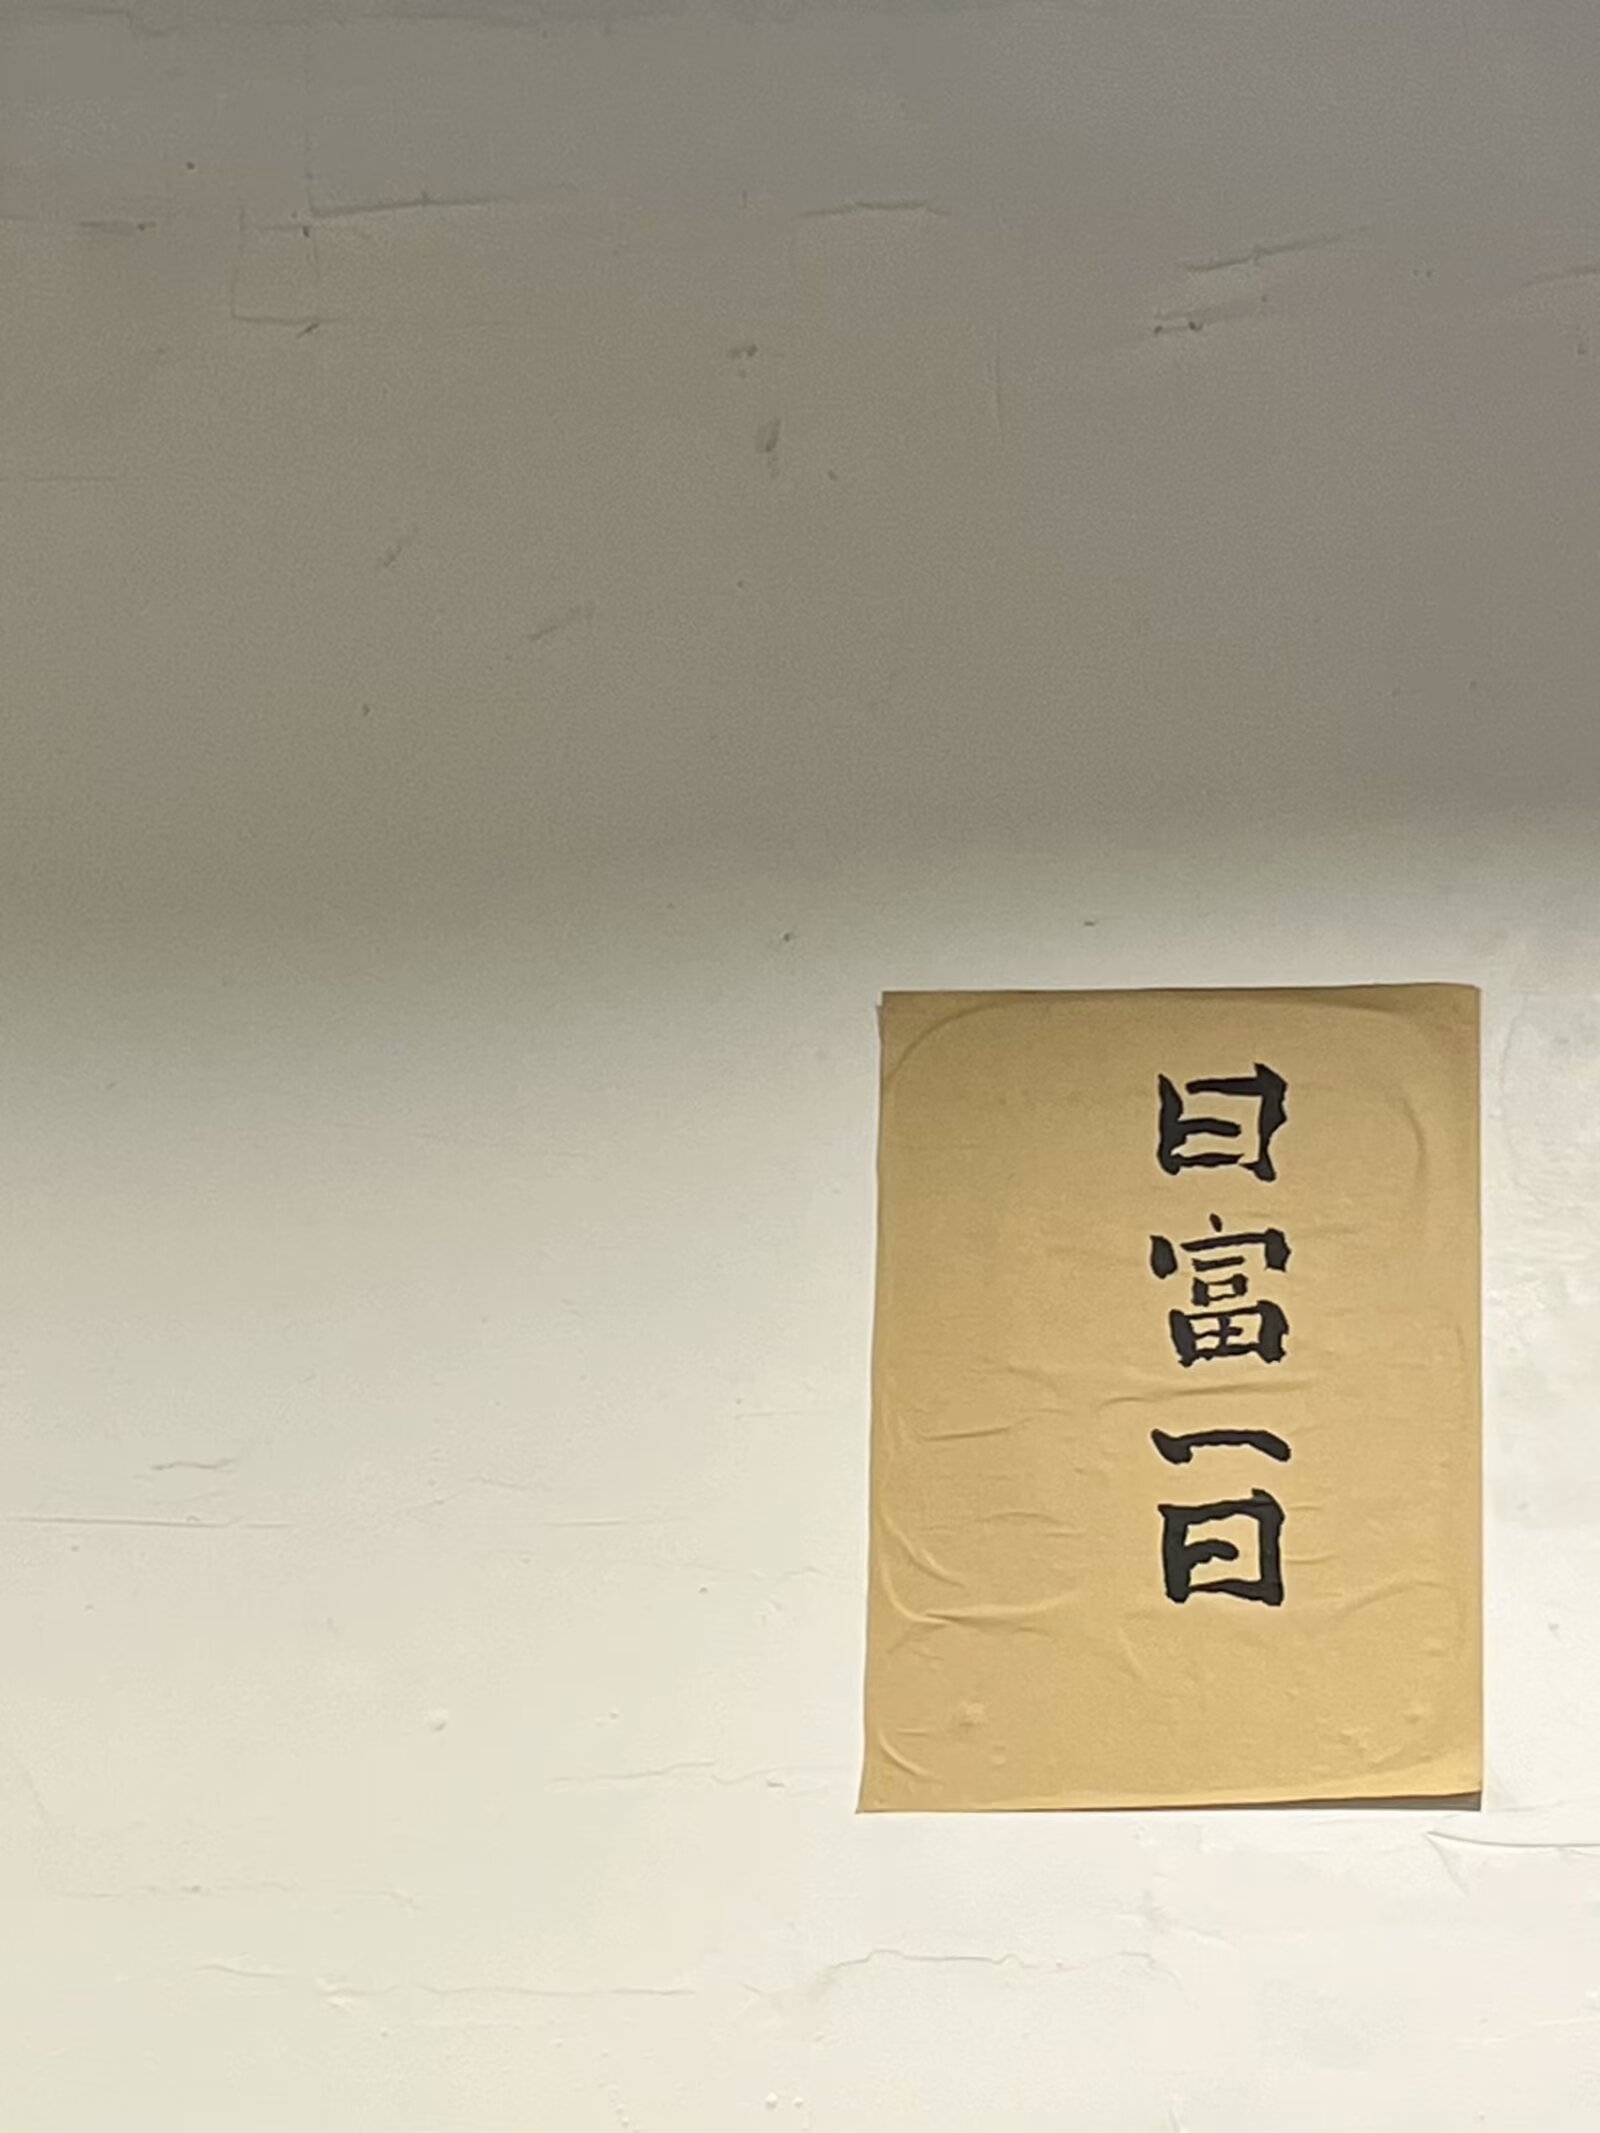 日富一日